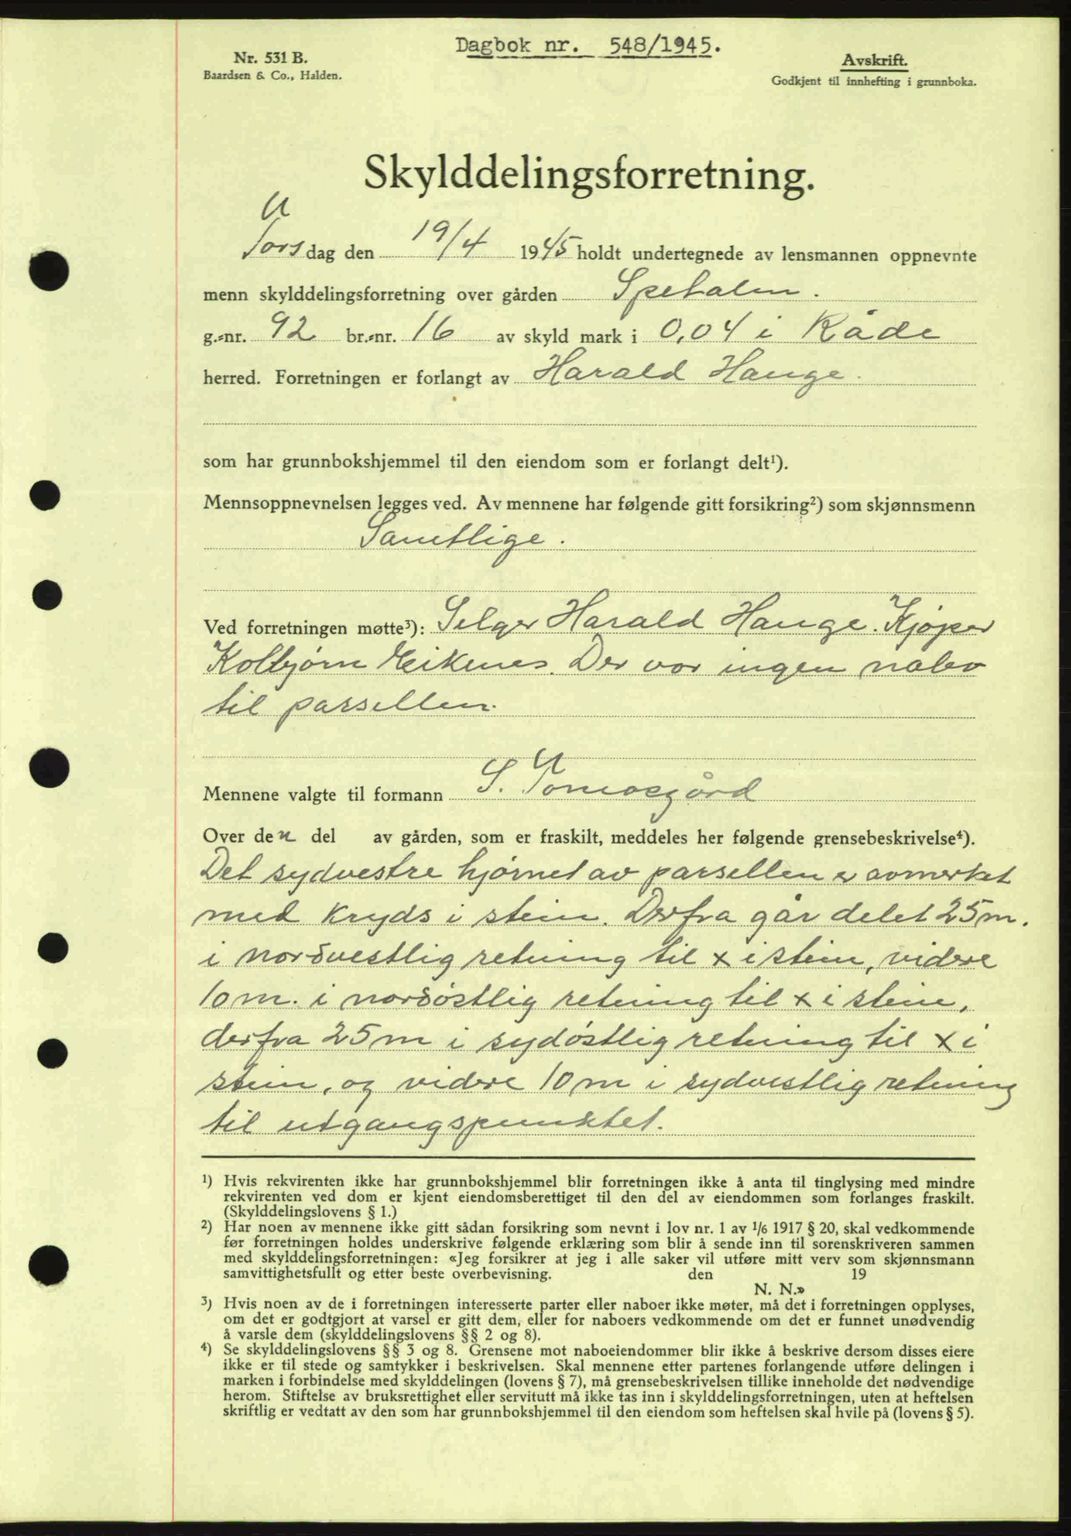 Dagbok nr. 548/1945.
Nr. 531 B.
Baardsen & Co., Halden.
Avskrift.
Godkjent til innhefting i grunnboka.
Skylddelingsforretning.
Torsdag den 19/4 1945 holdt undertegnede av lensmannen oppnevnte
menn skylddelingsforretning over gården Spetalen.
g.-nr. 92 br.-nr. 16 av skyld mark i 0,04 i Råde
herred. Forretningen er forlangt av Harald Hauge.
som har grunnbokshjemmel til den eiendom som er forlangt delt¹).
Mennsoppnevnelsen legges ved. Av mennene har følgende gitt forsikring²) som skjønnsmenn
Samtlige.
Ved forretningen møtte³): Selger Harald Hauge. Kjøper
Kolbjørn Eikenes. Der var ingen nabo
til parsellen.
Mennene valgte til formann S. Tomasgård
Over den del av gården, som er fraskilt, meddeles her følgende grensebeskrivelse⁴).
Det sydvestre hjørnet av parsellen er avmerket
med kryds i stein. Derfra går delet 25 m.
i nordvestlig retning til x i stein, videre
10 m. i nordöstlig retning til x i stein,
derfra 25 m i sydöstlig retning til x i
stein, og videre 10 m i sydvestlig retning
til utgangspunktet.
¹) Hvis rekvirenten ikke har grunnbokshjemmel blir forretningen ikke å anta til tinglysing med mindre
rekvirenten ved dom er kjent eiendomsberettiget til den del av eiendommen som forlanges fraskilt.
(Skylddelingslovens § 1.)
²) Har noen av mennene ikke gitt sådan forsikring som nevnt i lov nr. 1 av 1/6 1917 § 20, skal vedkommende
før forretningen holdes underskrive følgende erklæring som blir å sende inn til sorenskriveren sammen
med skylddelingsforretningen: «Jeg forsikrer at jeg i alle saker vil utføre mitt verv som skjønnsmann
samvittighetsfullt og etter beste overbevisning. den 19
N. N.»
³) Hvis noen av de i forretningen interesserte parter eller naboer ikke møter, må det i forretningen opplyses,
om det er godtgjort at varsel er gitt dem, eller for naboers vedkommende om det er funnet unødvendig
å varsle dem (skylddelingslovens §§ 2 og 8).
⁴) Se skylddelingslovens §§ 3 og 8. Grensene mot naboeiendommer blir ikke å beskrive dersom disses eiere
ikke er til stede og samtykker i beskrivelsen. Skal mennene etter partenes forlangende utføre delingen i
marken i forbindelse med skylddelingen (lovens § 7), må grensebeskrivelsen tillike inneholde det nødvendige
herom. Stiftelse av bruksrettighet eller servitutt må ikke tas inn i skylddelingsforretningen, uten at heftelsen
skriftlig er vedtatt av den som har grunnbokshjemmel til den eiendom som heftelsen skal hvile på (lovens § 5).